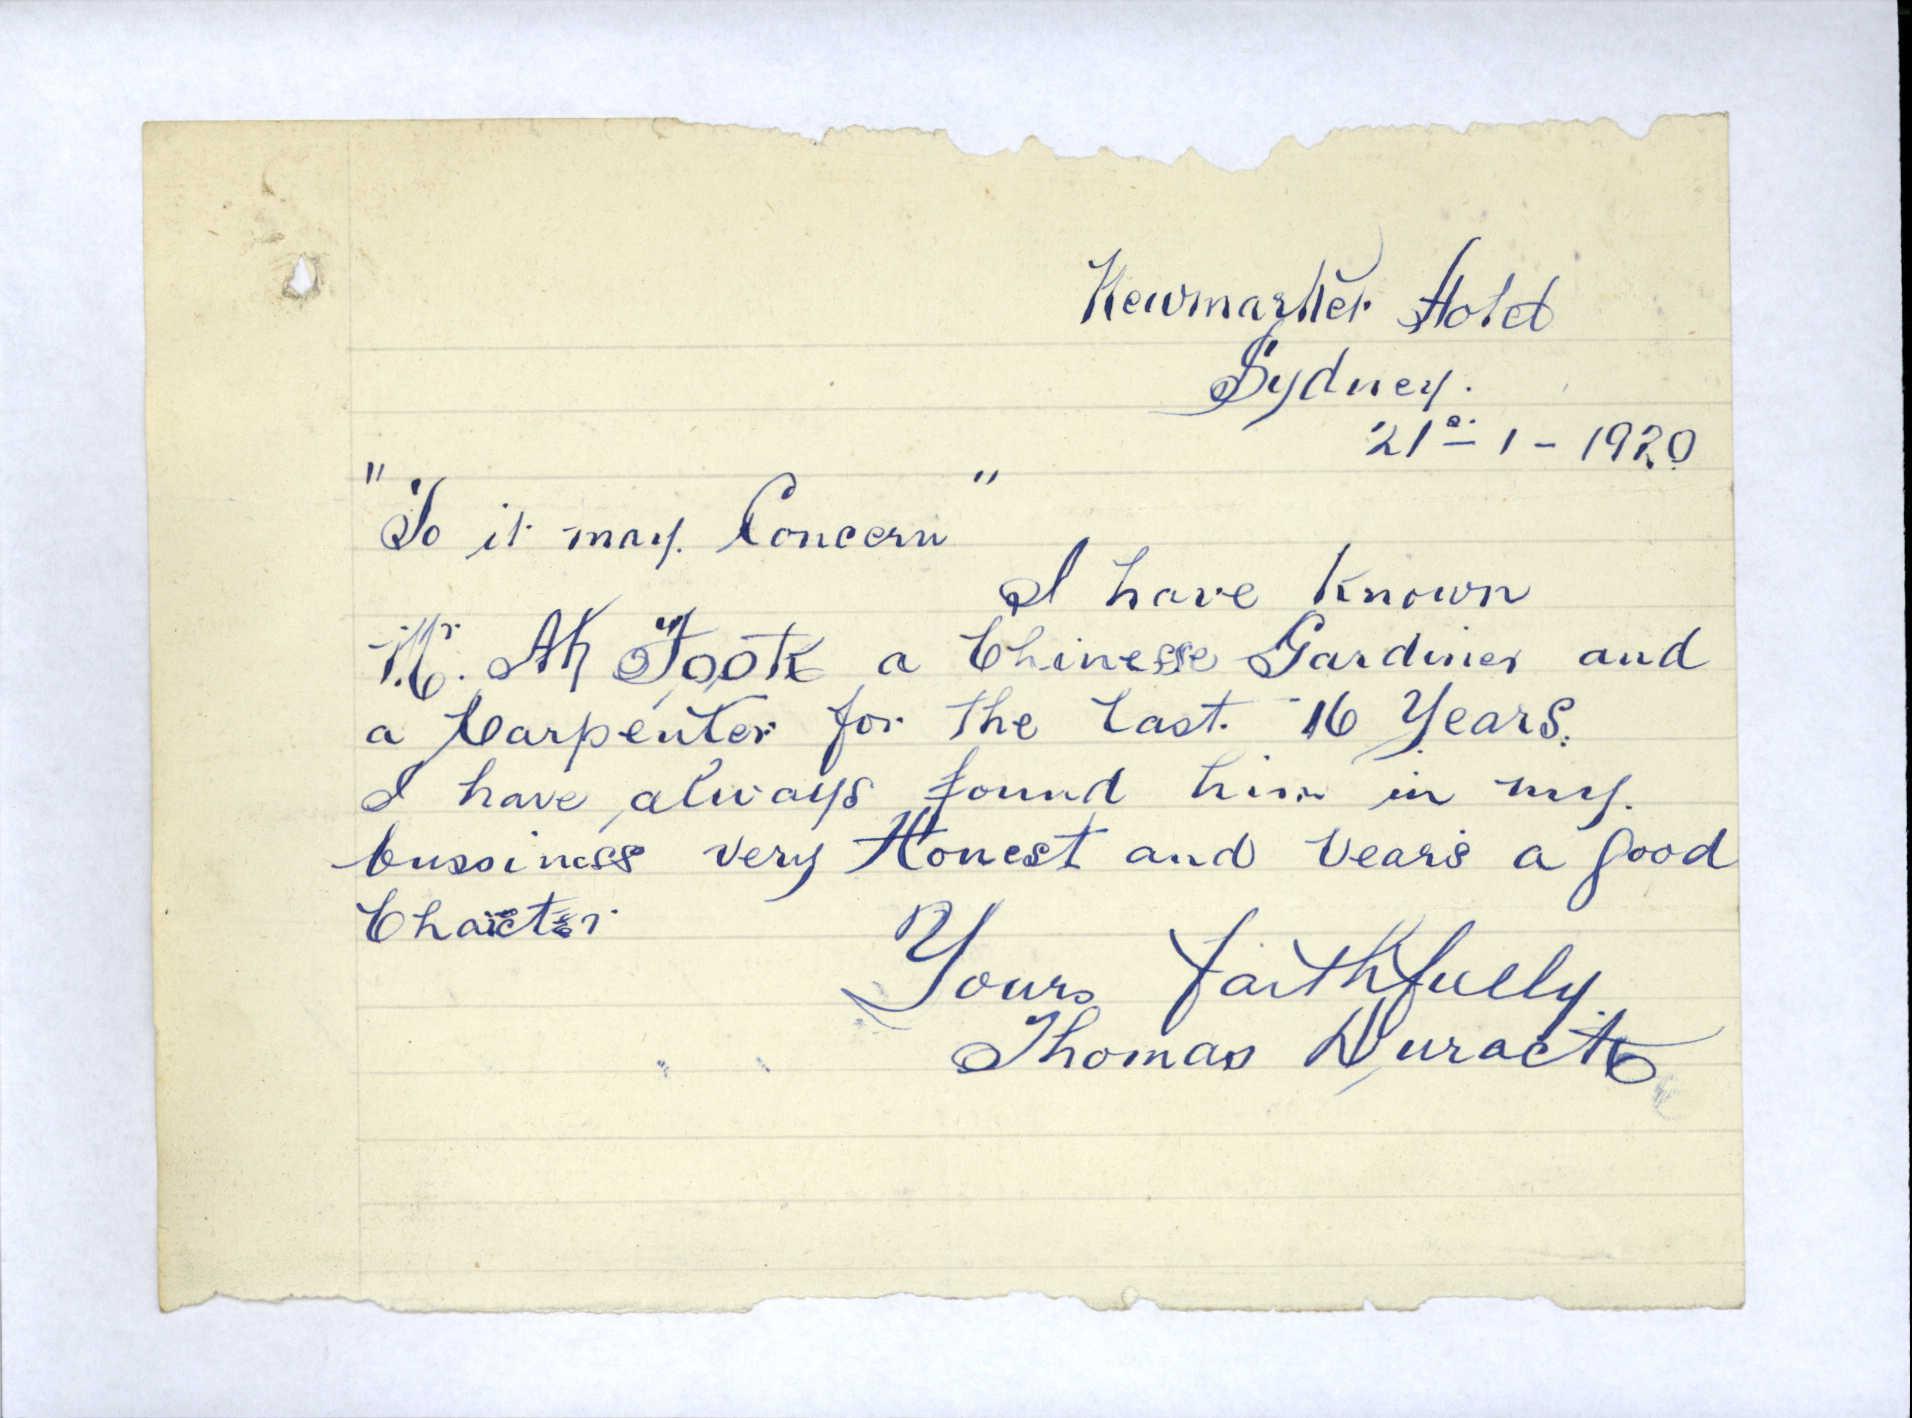 Newmarket Hotel
Sydney.
21st - 1 - 1920
"To it may Concern"
I have known
Mr. Ah Fook a Chinesse Gardiner and
a Carpenter for the last 16 Years.
I have always found him in my
bussiness very Honest and bears a good
Chaicter
Yours faithfully
Thomas